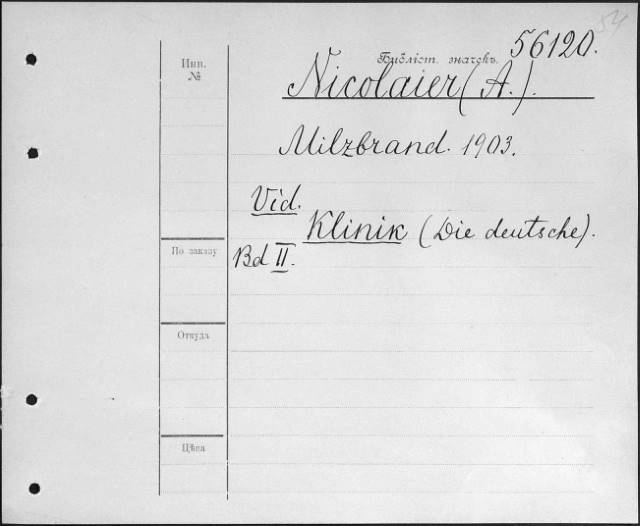 54
Библіот. значекъ. 56120.
Инв.
№
Nicolaier (A.).
Milzbrand. 1903.
Vid.
Klinik (Die deutsche).
Bd II.
По заказу
Откуда
Цѣна